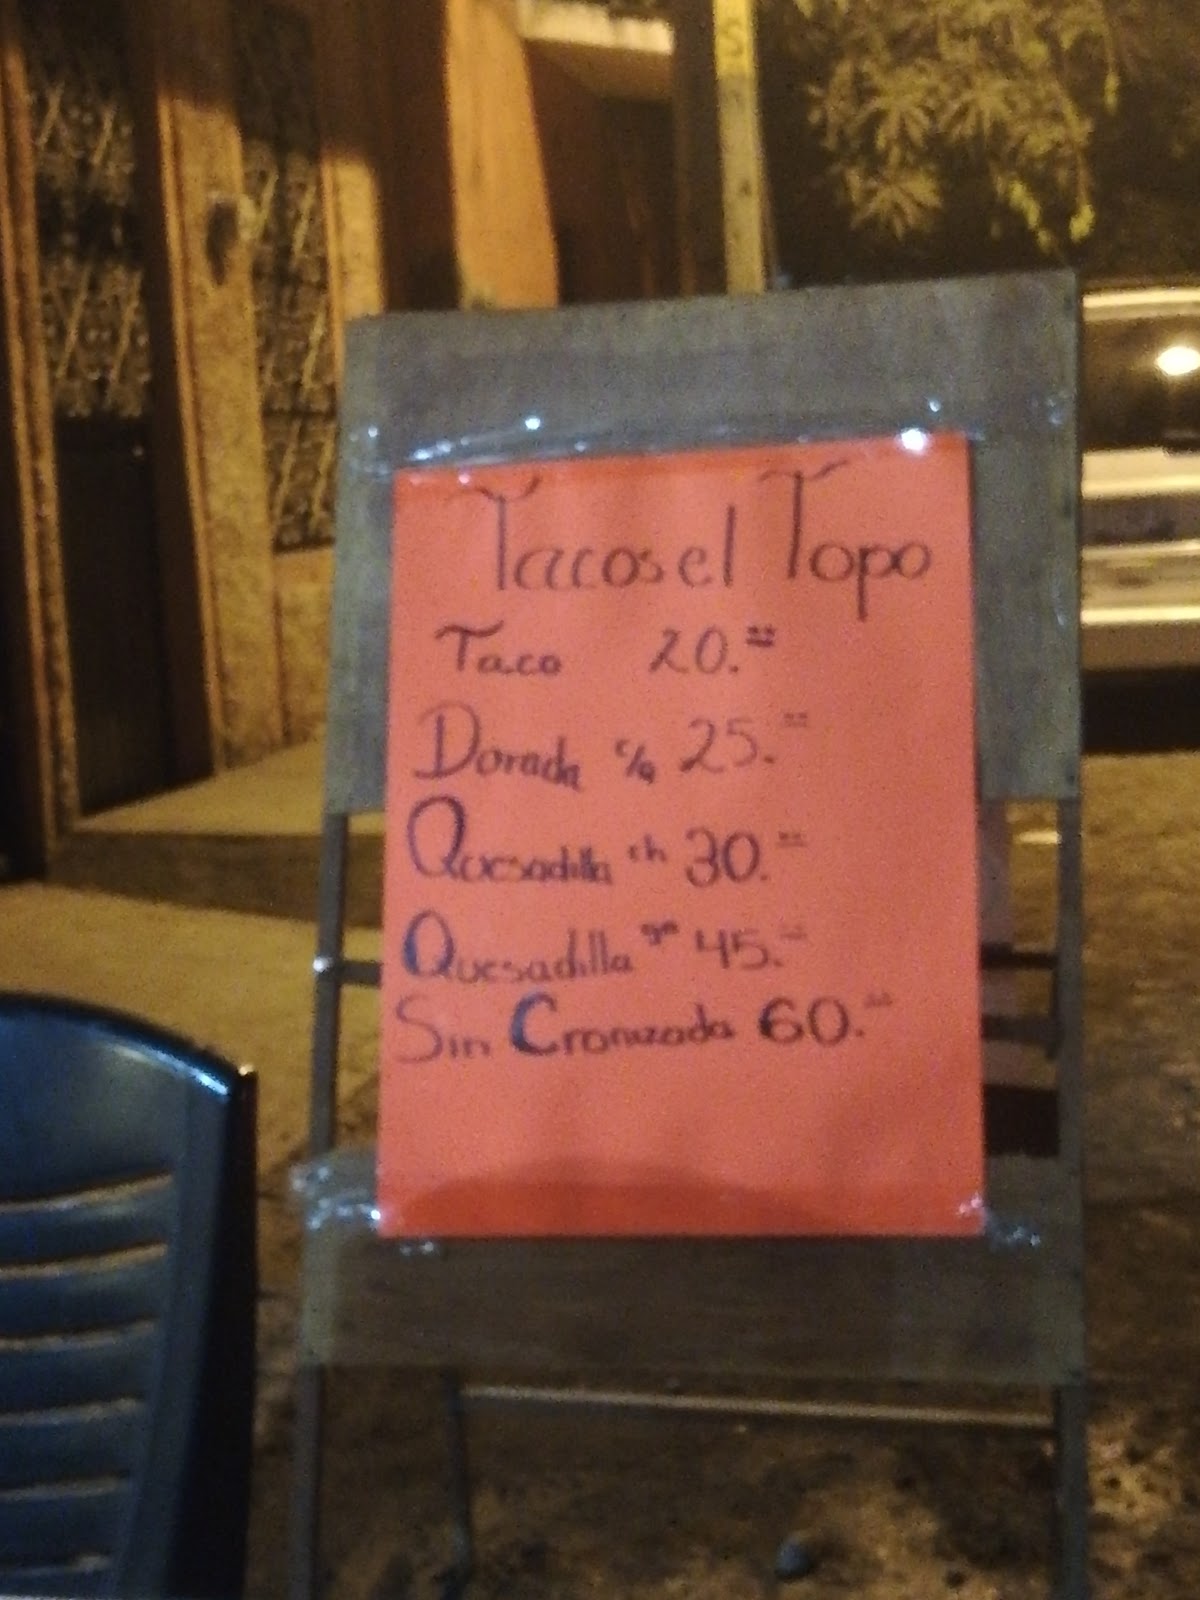 Tacos el Topo
Taco 20.00
Dorada c/q 25.00
Quesadilla ch 30.00
Quesadilla gr 45.00
Sin Cronizada 60.00